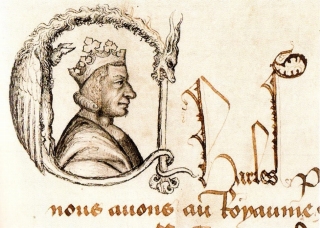 Charles P
nous auons au Royaume